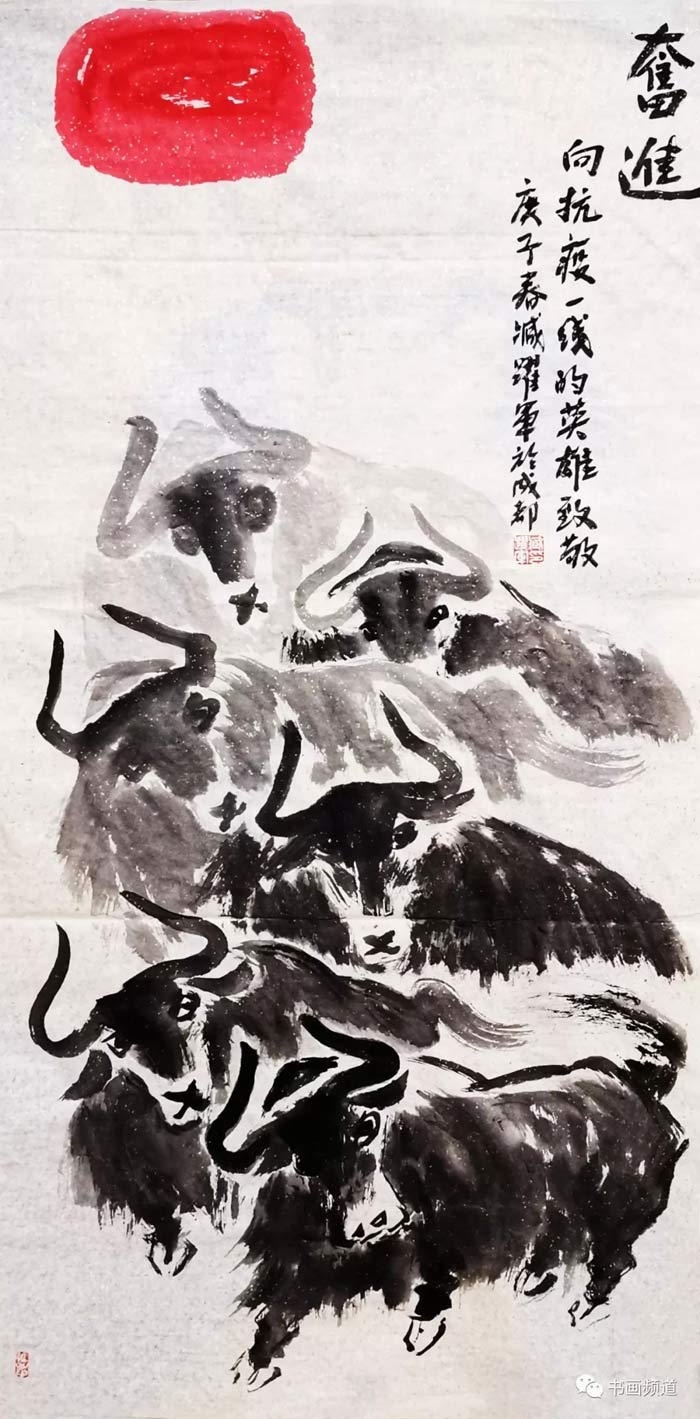 奮進
向抗疫一线的英雄致敬
庚子春臧躍軍於成都
书画频道